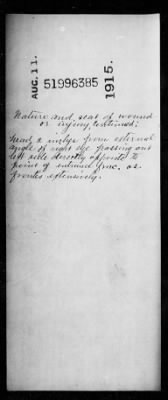 AUG. 11.
51996385
1915.
Nature and seat of wound
or injury, continued:
head, a missile from external
angle of right eye passing out
left side directly opposite to
point of entrance frac. os
frontis extensively.